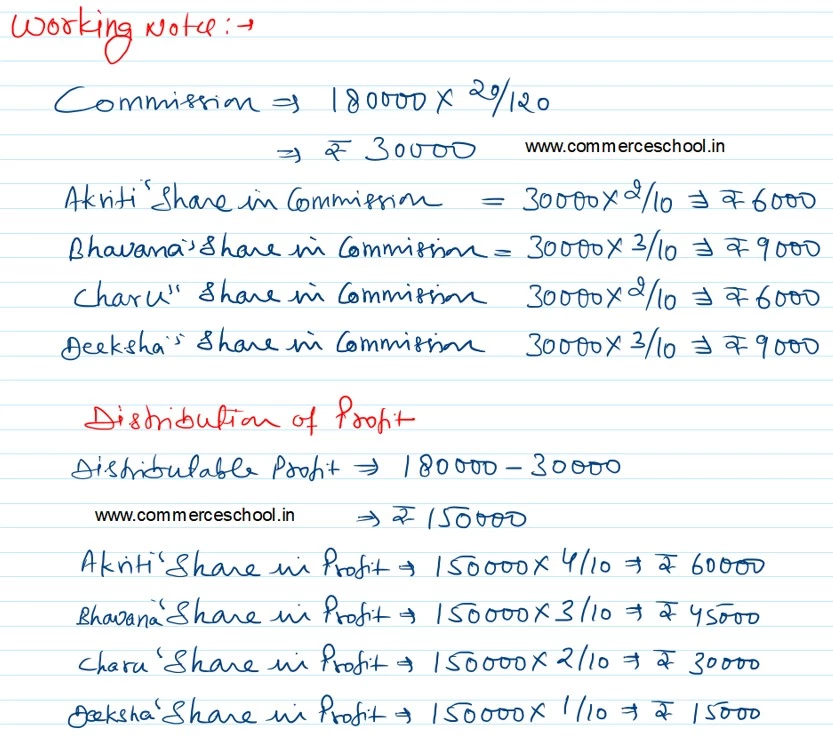 Working Note:→
Commission ⇒ 180000 × 20/120
⇒ ₹ 30000 www.commerceschool.in
Akriti' Share in Commission = 30000 × 2/10 ⇒ ₹ 6000
Bhavana's Share in Commission = 30000 × 3/10 ⇒ ₹ 9000
Charu" Share in Commission 30000 × 2/10 ⇒ ₹ 6000
Deeksha's Share in Commission 30000 × 3/10 ⇒ ₹ 9000
Distribution of Profit
Distributable Profit ⇒ 180000 – 30000
www.commerceschool.in ⇒ ₹ 150000
Akriti' Share in Profit → 150000 × 4/10 ⇒ ₹ 60000
Bhavana' Share in Profit → 150000 × 3/10 ⇒ ₹ 45000
Charu' Share in Profit → 150000 × 2/10 ⇒ ₹ 30000
Deeksha' Share in Profit → 150000 × 1/10 ⇒ ₹ 15000